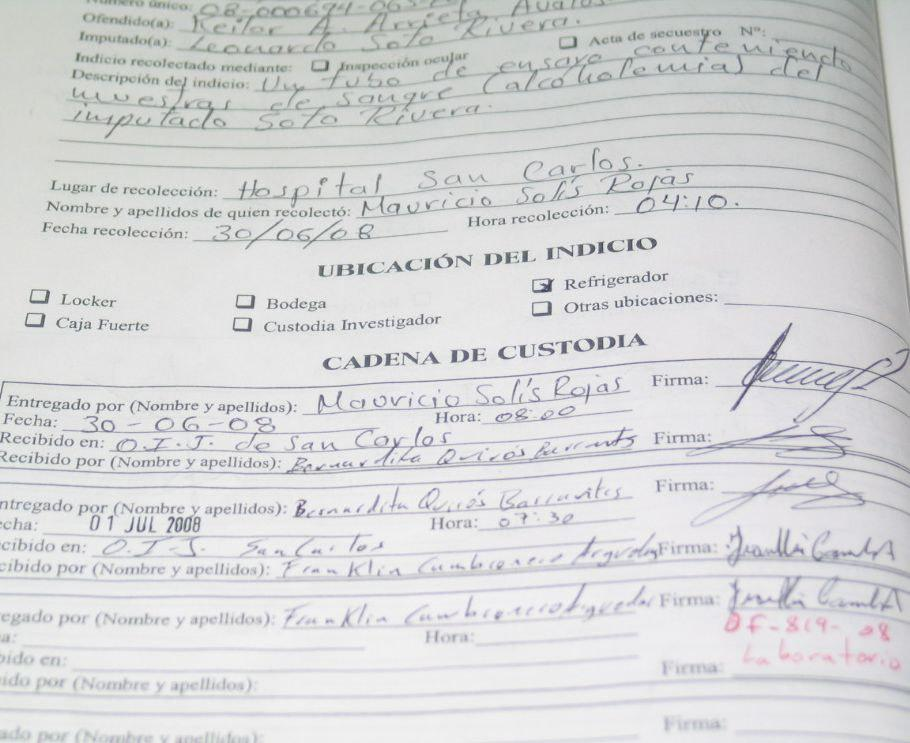 Número único: 08-000694-063-
Ofendido(a): Keilor A. Arrieta Avalos
Imputado(a): Leonardo Soto Rivera.
Indicio recolectado mediante: ☐ Inspección ocular ☐ Acta de secuestro Nº:
Descripción del indicio: Un tubo de ensayo conteniendo
muestras de sangre (alcoholemia) del
imputado Soto Rivera.
Lugar de recolección: Hospital San Carlos.
Nombre y apellidos de quien recolectó: Mauricio Solís Rojas
Fecha recolección: 30/06/08 Hora recolección: 04:10.
UBICACIÓN DEL INDICIO
☐ Locker ☐ Bodega ☑ Refrigerador
☐ Caja Fuerte ☐ Custodia Investigador ☐ Otras ubicaciones:
CADENA DE CUSTODIA
Entregado por (Nombre y apellidos): Mauricio Solís Rojas Firma:
Fecha: 30-06-08 Hora: 08:00
Recibido en: O.I.J. de San Carlos
Recibido por (Nombre y apellidos): Bernardita Quirós Firma:
ntregado por (Nombre y apellidos): Bernardita Quirós Firma:
echa: 01 JUL 2008 Hora: 07:30
cibido en: O.I.J. San Carlos
cibido por (Nombre y apellidos): Franklin Firma:
regado por (Nombre y apellidos): Franklin Firma:
a: Hora: DF-819-08
bido en: Laboratorio
ido por (Nombre y apellidos): Firma:
ado por (Nombre y apellidos): Firma: